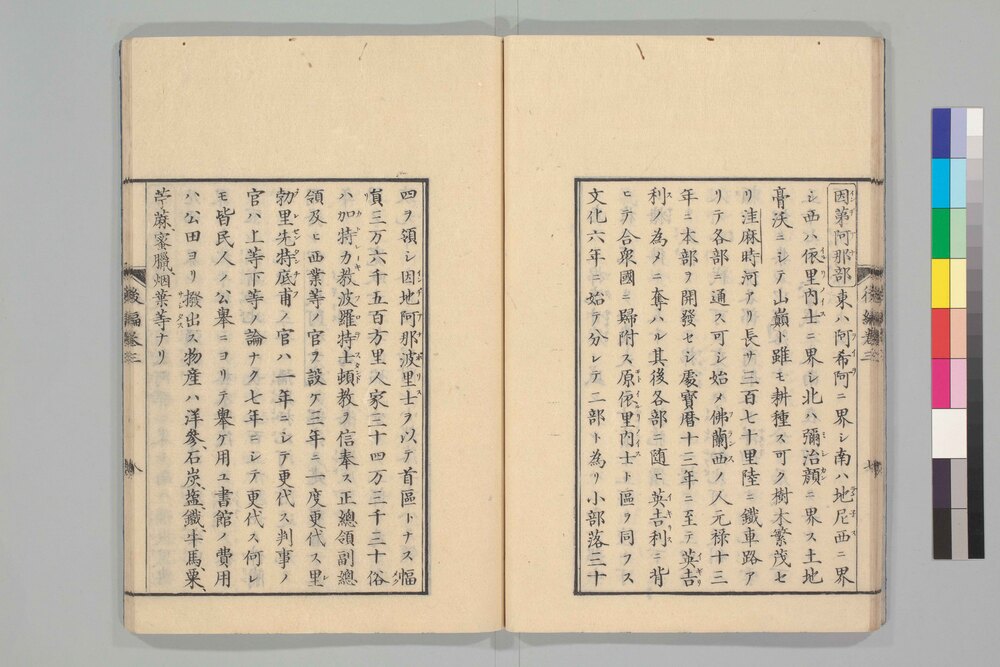 因第阿那部東ハ阿希阿ニ界シ南ハ地尼西ニ界
シ西ハ依里内士ニ界シ北ハ彌治顔ニ界ス土地
膏沃ニシテ山巓ト雖モ耕種ス可ク樹木繁茂セ
リ洼麻時河アリ長サ三百七十里陸ニ鐵車路ア
リテ各部ニ通ス可シ始メ佛蘭西ノ人元禄十三
年ニ本部ヲ開發セシ處寳暦十三年ニ至テ英吉
利ノ為メニ奪ハル其後各部ニ随ヒ英吉利ニ背
ヒテ合衆國ニ歸附ス原依里内士ト區ヲ同フス
文化六年ニ始テ分レテ二部ト為リ小部落三十
後編巻三
四ヲ領シ因地阿那波里士ヲ以テ首區トナス幅
員三万六千五百方里人家三十四万三千三十俗
ハ加特力教波羅特士頓教ヲ信奉ス正總領副總
領及ヒ西業等ノ官ヲ設ケ三年ニ一度更代ス里
勃里先特底甫ノ官ハ一年ニシテ更代ス判事ノ
官ハ上等下等ノ論ナク七年ニシテ更代ス何レ
モ皆民人ノ公舉ニヨリテ舉ケ用ユ書館ノ費用
ハ公田ヨリ撥出ス物産ハ洋參、石炭、塩、鐵、牛馬、粟、
苧麻、蜜臘、烟葉等ナリ
後編巻三
八